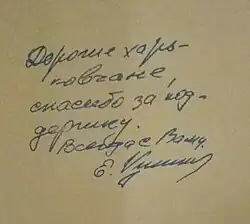 Дорогие харь-
ковчане,
спасибо за под-
держку.
Всегда с Вами.
Е.